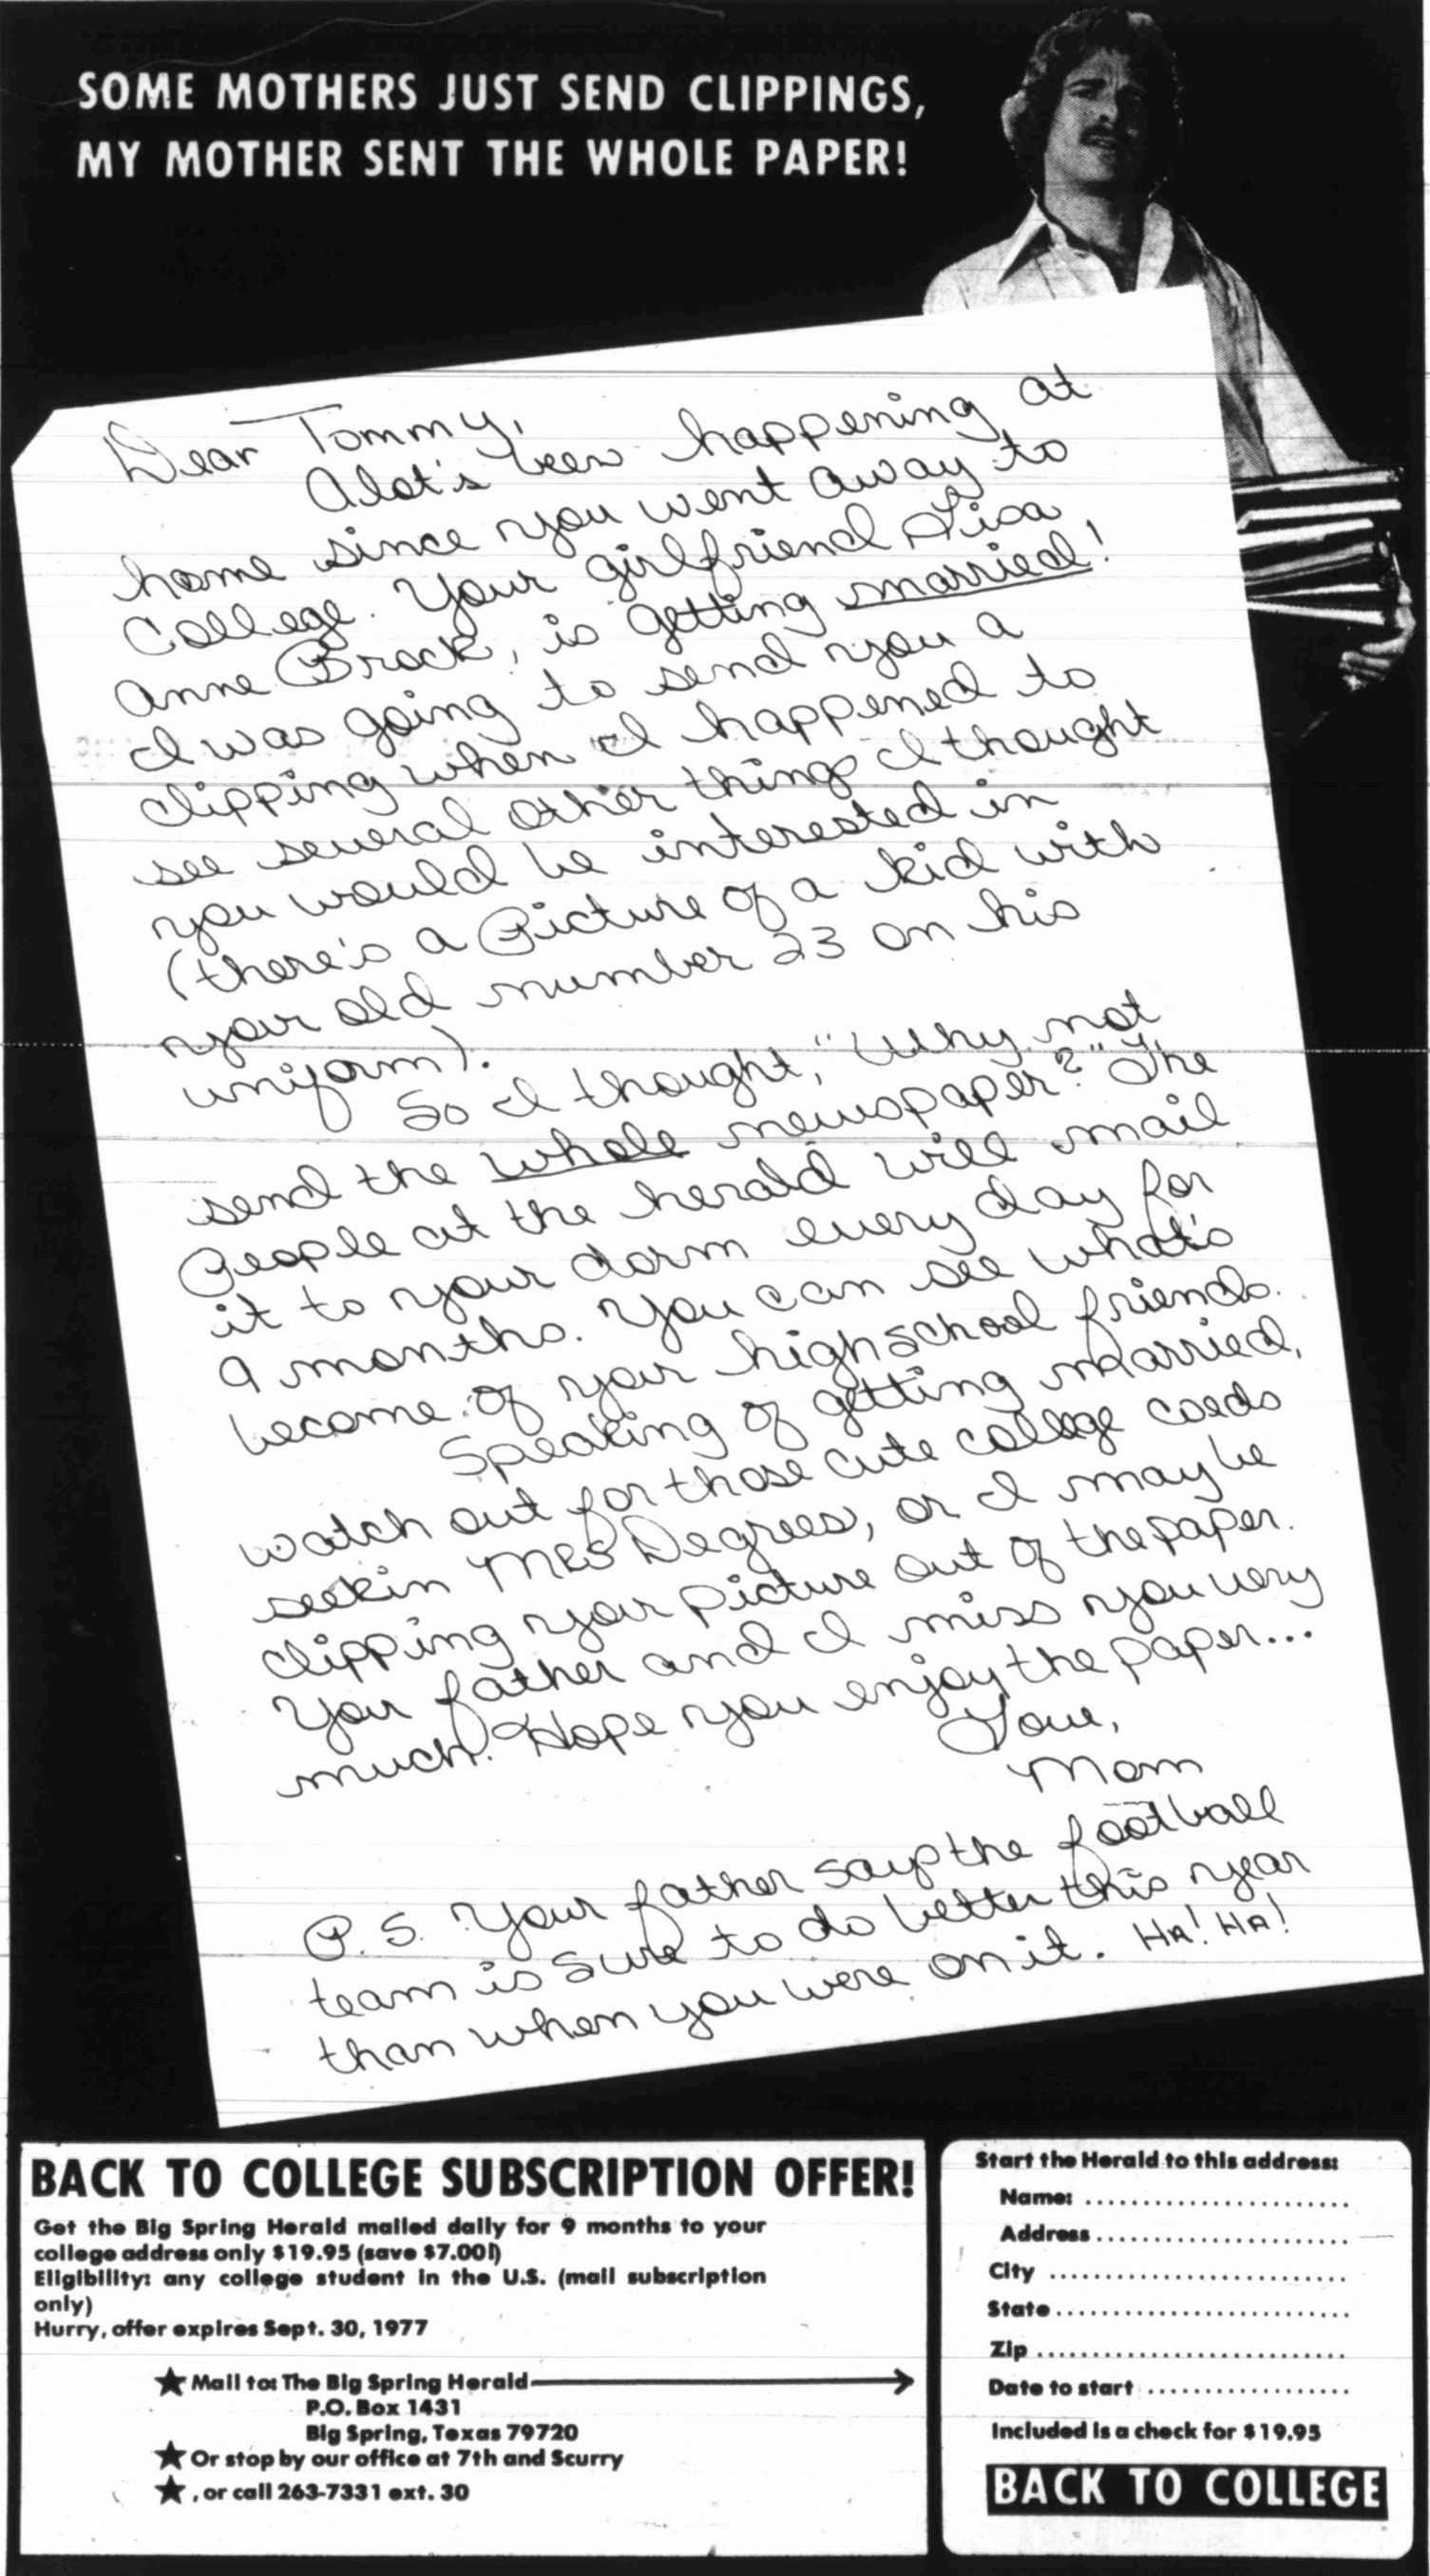 SOME MOTHERS JUST SEND CLIPPINGS,
MY MOTHER SENT THE WHOLE PAPER!
Dear Tommy,
Alot's been happening at
home since you went away to
College. Your girlfriend Lisa
Anne Brock, is getting married!
I was going to send you a
clipping when I happened to
see several other things I thought
you would be interested in
(there's a Picture of a kid with
your old number 23 on his
uniform).
So I thought, "Why not
send the whole newspaper?" The
People at the herald will mail
it to your dorm every day for
9 months. You can see what's
become of your highschool friends.
Speaking of getting married,
watch out for those cute college coeds
seekin MRS Degrees, or I may be
clipping your picture out of the paper.
Your father and I miss you very
much. Hope you enjoy the paper...
Love,
Mom
P.S. Your father says the football
team is sure to do better this year
than when you were on it. HA! HA!
BACK TO COLLEGE SUBSCRIPTION OFFER!
Get the Big Spring Herald mailed daily for 9 months to your
college address only $19.95 (save $7.00!)
Eligibility: any college student in the U.S. (mail subscription
only)
Hurry, offer expires Sept. 30, 1977
★ Mail to: The Big Spring Herald
P.O. Box 1431
Big Spring, Texas 79720
★ Or stop by our office at 7th and Scurry
★ , or call 263-7331 ext. 30
Start the Herald to this address:
Name: ........................
Address ........................
City ........................
State ........................
Zip ........................
Date to start ..................
Included is a check for $19.95
BACK TO COLLEGE